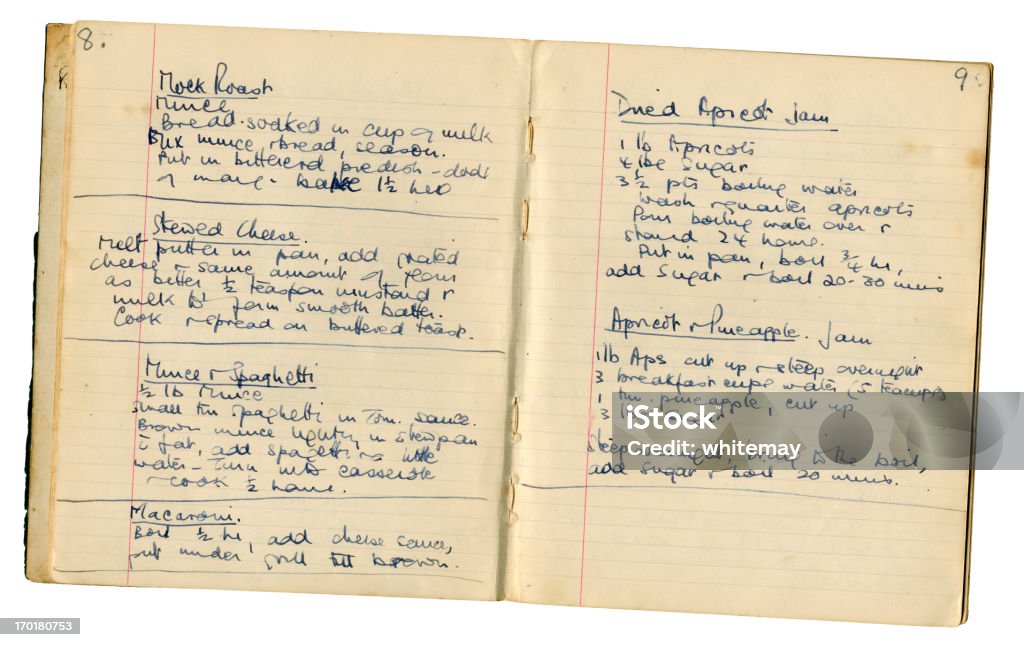 8.
Mock Roast
Mince
Bread soaked in cup of milk
Mix mince & bread, season.
Put in buttered piedish - dods
of marg - bake 1½ hrs
Stewed Cheese.
Melt butter in pan, add grated
cheese & same amount of flour
as butter ½ teaspoon mustard &
milk to form smooth batter.
Cook & spread on buttered toast.
Mince & Spaghetti
½ lb Mince
Small tin Spaghetti in Tom. sauce.
Brown mince lightly in stewpan
c̄ fat, add spaghetti & little
water - Turn into casserole
& cook ½ hour.
Macaroni.
Boil ½ hr, add cheese sauce,
put under grill till brown.
9.
Dried Apricot Jam
1 lb Apricots
4 lbs Sugar
3½ pts boiling water
Wash & quarter apricots
Pour boiling water over &
stand 24 hours.
Put in pan, boil ¾ hr,
add Sugar & boil 20-30 mins
Apricot & Pineapple Jam
1 lb Aps cut up & steep overnight
3 breakfast cups water (5 teacups)
1 tin pineapple, cut up
3 lb
Steep to the boil,
add Sugar & boil 20 mins.
iStock
Credit: whitemay
170180753